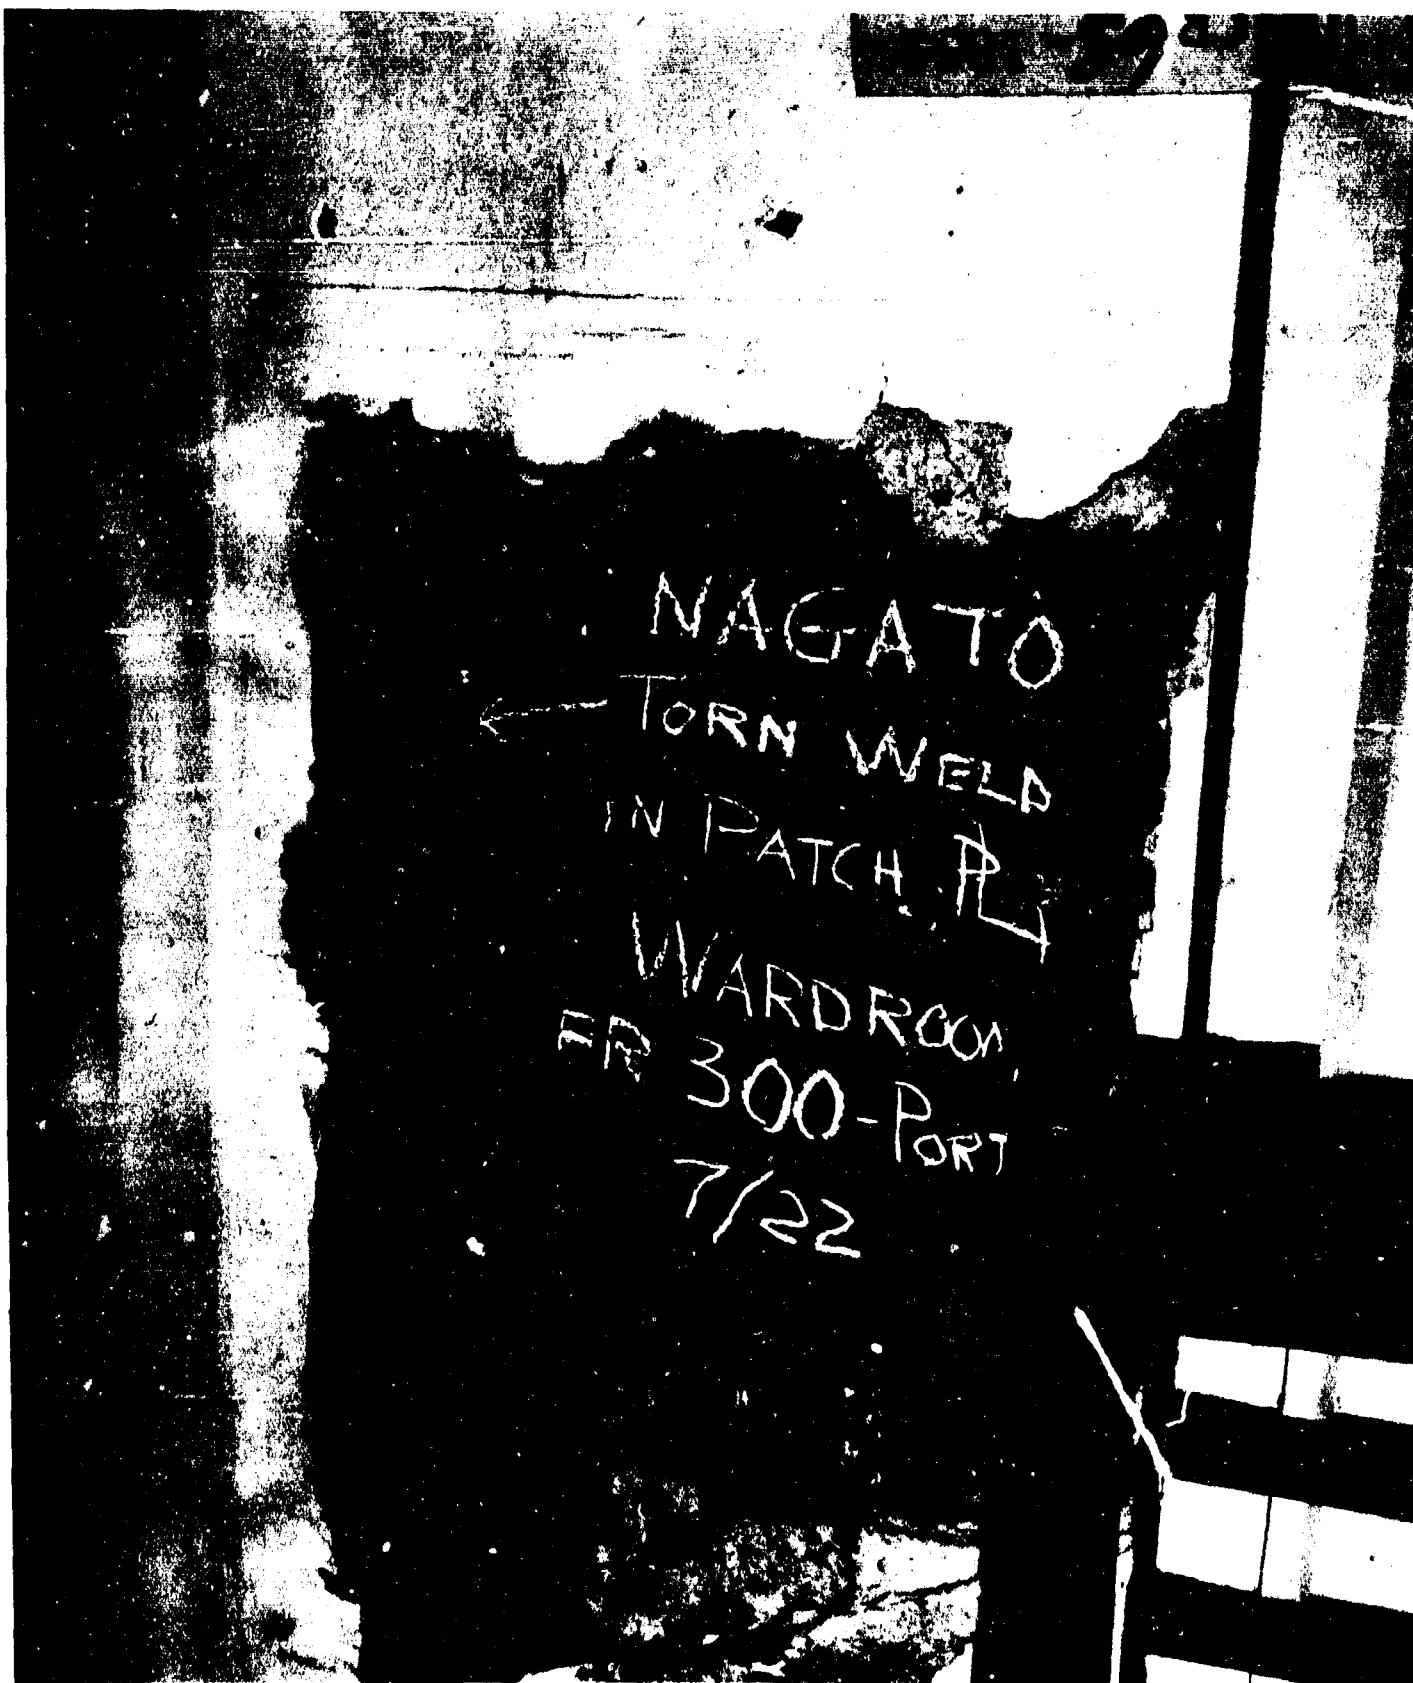 NAGATO
TORN WELD
IN PATCH PL
WARDROOM
FR 300-PORT
7/22